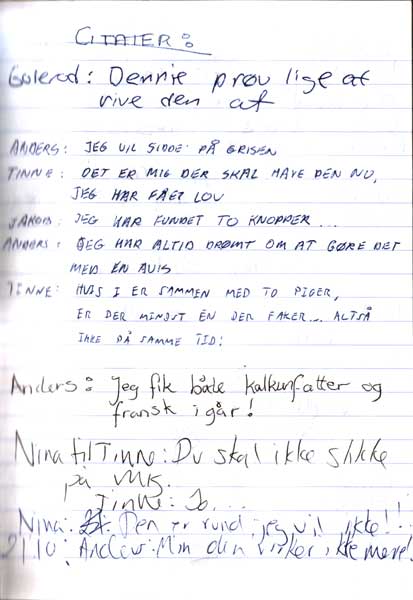 CITATER:
Galerod: Dennie prøv lige at
rive den af
ANDERS: JEG VIL SIDDE PÅ GRISEN
TINNE: DET ER MIG DER SKAL HAVE DEN NU,
JEG HAR FÅET LOV
JAKOB: JEG HAR FUNDET TO KNOPPER...
ANDERS: JEG HAR ALTID DRØMT OM AT GØRE DET
MED EN AVIS
TINNE: HVIS I ER SAMMEN MED TO PIGER,
ER DER MINDST EN DER FAKER... ALTSÅ
IKKE PÅ SAMME TID!
Anders: Jeg fik både kalkunfatter og
fransk i går!
Nina til Tinne: Du skal ikke slikke
på mig.
Tinne: Jo...
Nina: Den er rund, jeg vil ikke!!
21.10: Anders: Min den virker ikke mere!